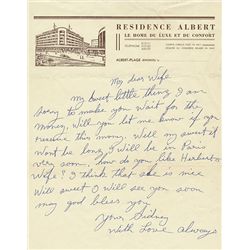 RESIDENCE ALBERT
LE HOME DU LUXE ET DU CONFORT
ALBERT-PLAGE
My dear Wife
My Sweet little thing I am
sorry to make you wait for the
money, Will you let me know if you
receive this money. Well my sweet it
Wont be long I Will be in Paris
very soon, how do you like Herbert
Wife? I think that she is nice
Will sweet I Will see you soon
may god bless you
Yours Sidney
With Love always